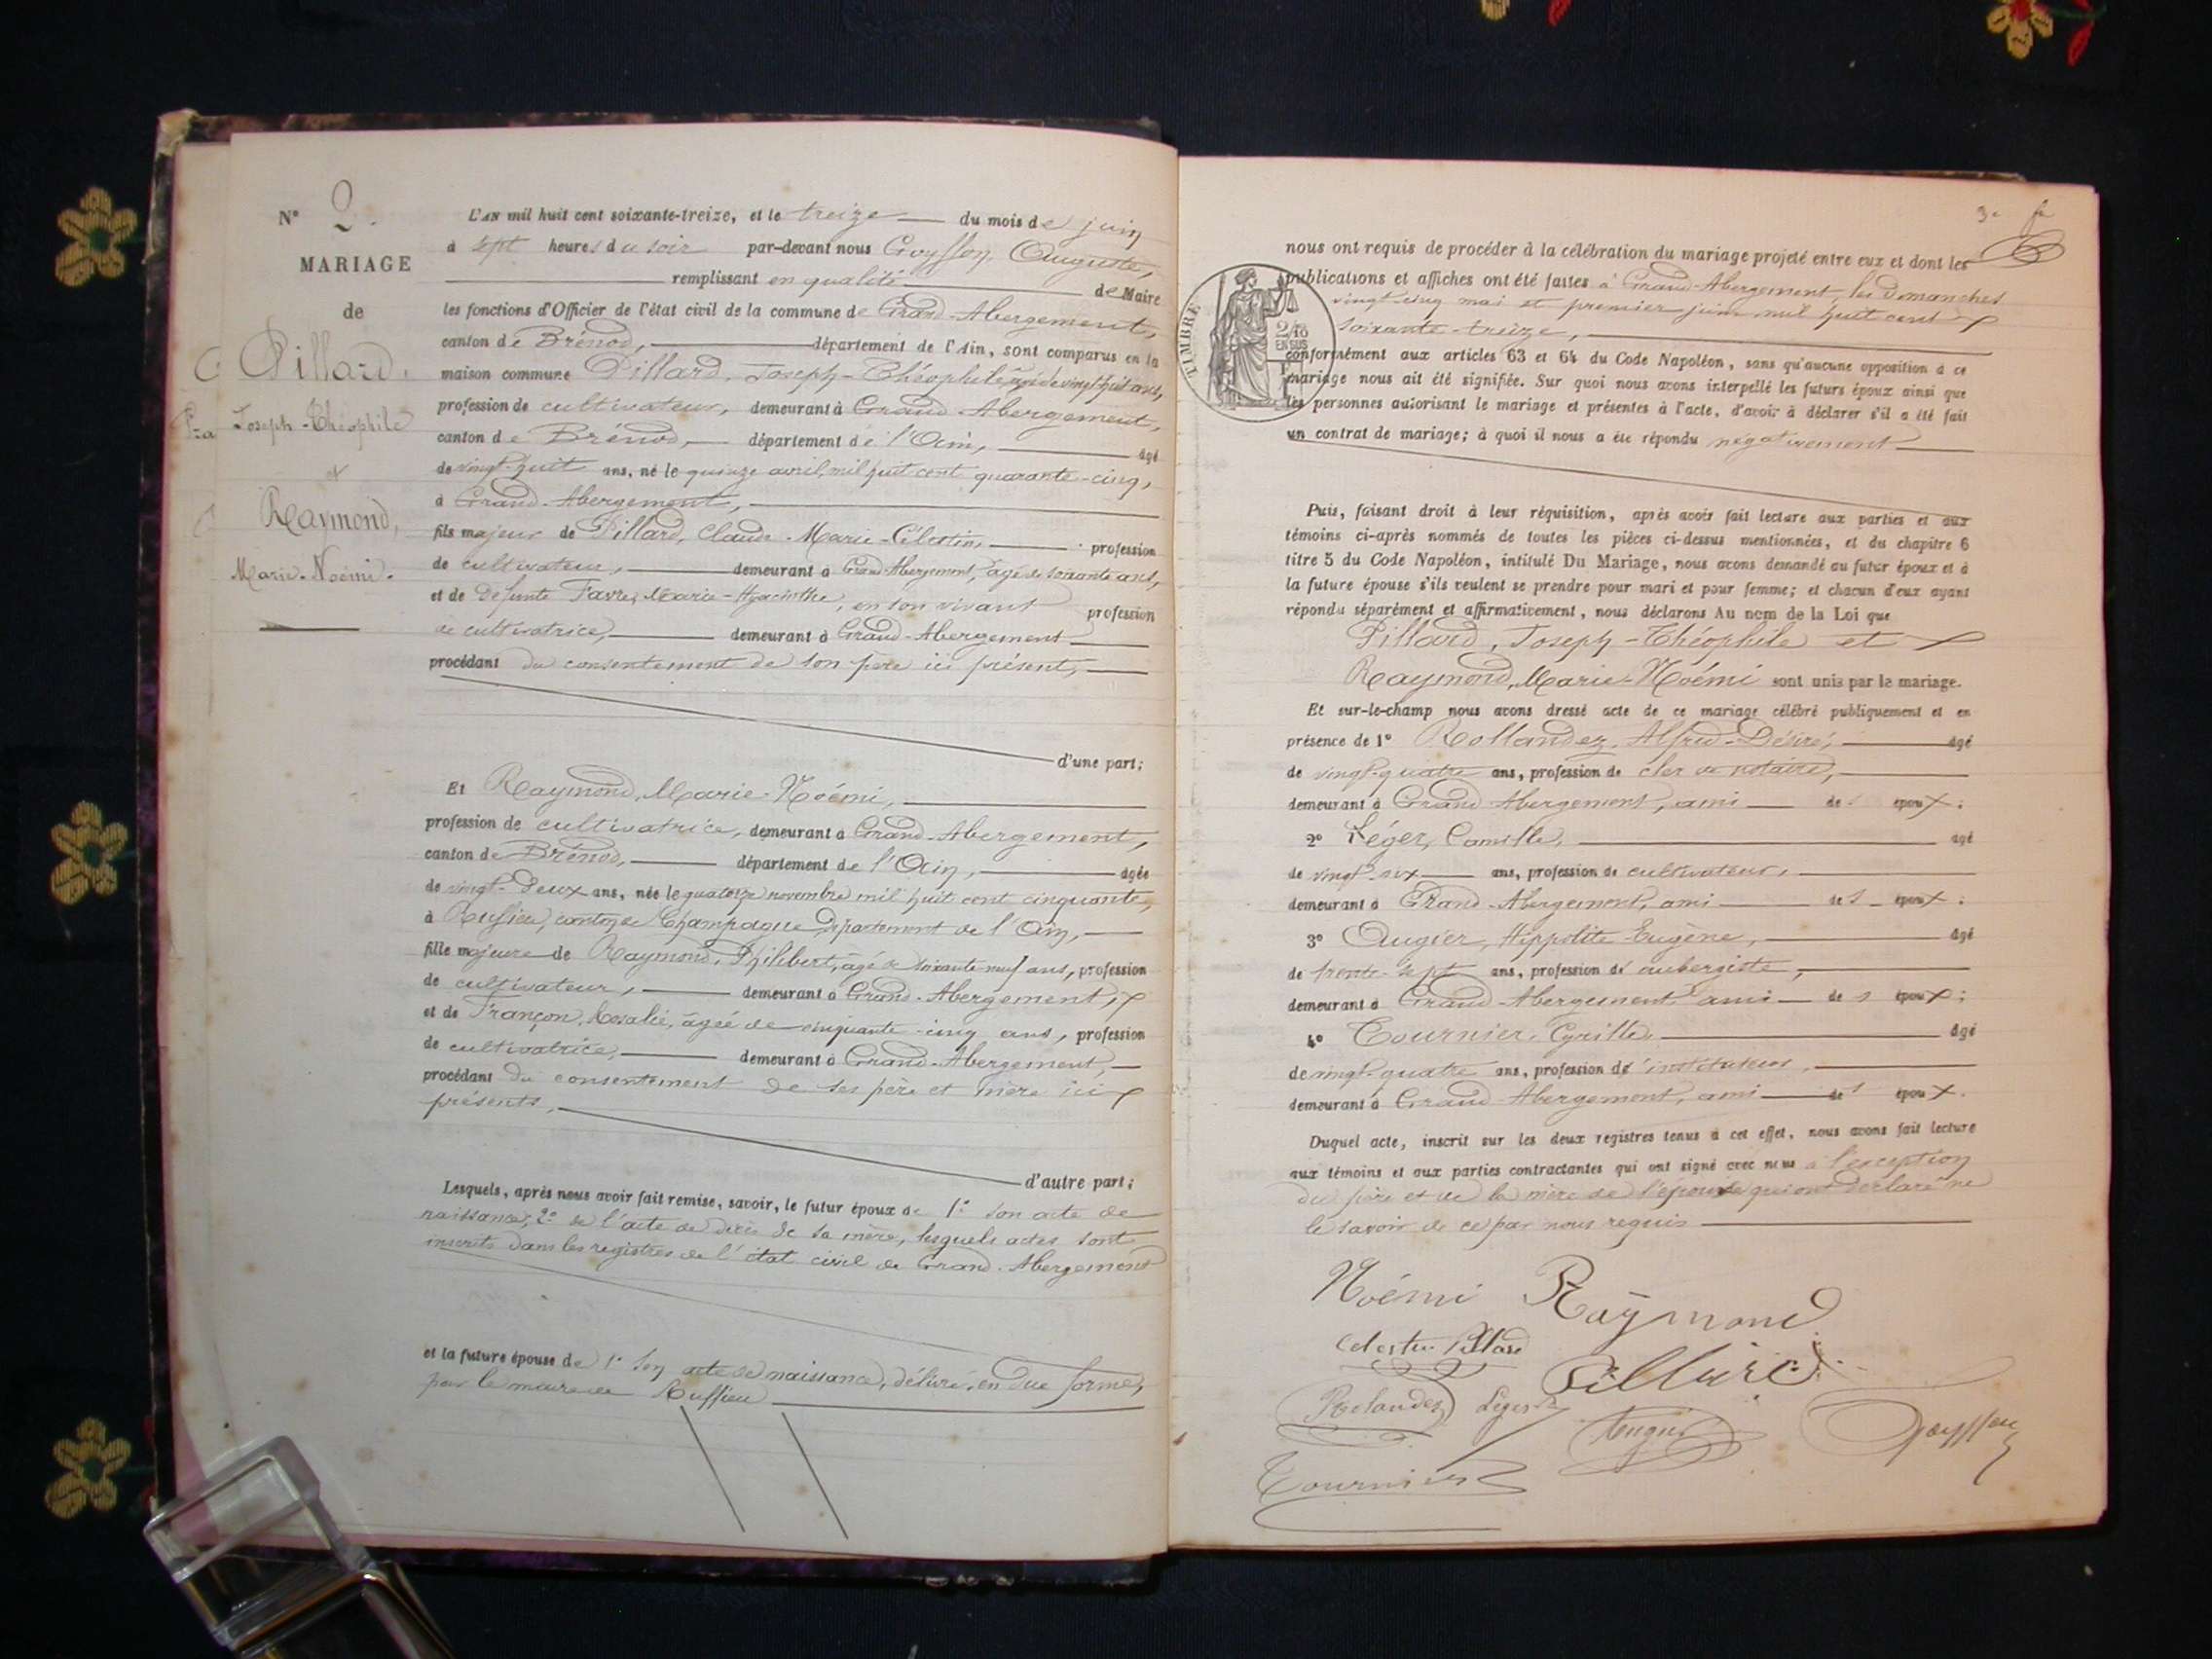 N° 2.
MARIAGE
de
Pillard,
Joseph-Théophile
et
Raymond,
Marie-Noémi.
L'AN mil huit cent soixante-treize, et le treize du mois de juin
à sept heures du soir par-devant nous Goyffon, Auguste,
remplissant en qualité de Maire
les fonctions d'Officier de l'état civil de la commune de Grand-Abergement,
canton de Brénod, département de l'Ain, sont comparus en la
maison commune Pillard, Joseph-Théophile, âgé de vingt-huit ans,
profession de cultivateur, demeurant à Grand-Abergement,
canton de Brénod, département de l'Ain, âgé
de vingt-huit ans, né le quinze avril mil huit cent quarante-cinq,
à Grand-Abergement,
fils majeur de Pillard, Claude-Marie-Célestin, profession
de cultivateur, demeurant à Grand-Abergement, âgé de soixante ans,
et de défunte Favre, Marie-Hyacinthe, en son vivant profession
de cultivatrice, demeurant à Grand-Abergement
procédant du consentement de son père ici présent,
d'une part;
Et Raymond, Marie-Noémi,
profession de cultivatrice, demeurant à Grand-Abergement,
canton de Brénod, département de l'Ain, âgée
de vingt-deux ans, née le quatorze novembre mil huit cent cinquante,
à Ruffieu, canton de Champagne, département de l'Ain,
fille majeure de Raymond, Philibert, âgé de soixante neuf ans, profession
de cultivateur, demeurant à Grand-Abergement,
et de Françon, Rosalie, âgée de cinquante-cinq ans, profession
de cultivatrice, demeurant à Grand-Abergement,
procédant du consentement de ses père et mère ici
présents,
d'autre part;
Lesquels, après nous avoir fait remise, savoir, le futur époux de 1° son acte de
naissance, 2° de l'acte de décès de sa mère, lesquels actes sont
inscrits dans les registres de l'état civil de Grand-Abergement
et la future épouse de 1° son acte de naissance, délivré, en due forme,
par le maire de Ruffieu
3e
TIMBRE
2/10
EN SUS
nous ont requis de procéder à la célébration du mariage projeté entre eux et dont les
publications et affiches ont été faites à Grand-Abergement, les dimanches
vingt-cinq mai et premier juin mil huit cent
soixante-treize,
conformément aux articles 63 et 64 du Code Napoléon, sans qu'aucune opposition à ce
mariage nous ait été signifiée. Sur quoi nous avons interpellé les futurs époux ainsi que
les personnes autorisant le mariage et présentes à l'acte, d'avoir à déclarer s'il a été fait
un contrat de mariage; à quoi il nous a été répondu négativement
Puis, faisant droit à leur réquisition, après avoir fait lecture aux parties et aux
témoins ci-après nommés de toutes les pièces ci-dessus mentionnées, et du chapitre 6
titre 5 du Code Napoléon, intitulé Du Mariage, nous avons demandé au futur époux et à
la future épouse s'ils veulent se prendre pour mari et pour femme; et chacun d'eux ayant
répondu séparément et affirmativement, nous déclarons Au nom de la Loi que
Pillard, Joseph-Théophile et
Raymond, Marie-Noémi sont unis par le mariage.
Et sur-le-champ nous avons dressé acte de ce mariage célébré publiquement et en
présence de 1° Rollandez, Alfred-Désiré, âgé
de vingt-quatre ans, profession de clerc de notaire,
demeurant à Grand-Abergement, ami des époux;
2° Léger, Camille, âgé
de vingt-six ans, profession de cultivateur,
demeurant à Grand-Abergement, ami des époux;
3° Augier, Hippolite Eugène, âgé
de trente-sept ans, profession d'aubergiste,
demeurant à Grand-Abergement, ami des époux;
4° Tournier, Cyrille, âgé
de vingt-quatre ans, profession d'instituteur,
demeurant à Grand-Abergement, ami des époux.
Duquel acte, inscrit sur les deux registres tenus à cet effet, nous avons fait lecture
aux témoins et aux parties contractantes qui ont signé avec nous à l'exception
du père et de la mère de l'épouse qui ont déclaré ne
le savoir de ce par nous requis
Noémi Raymond
Célestin Pillard
Pillard
Rolandez Léger Augier Goyffon
Tournier